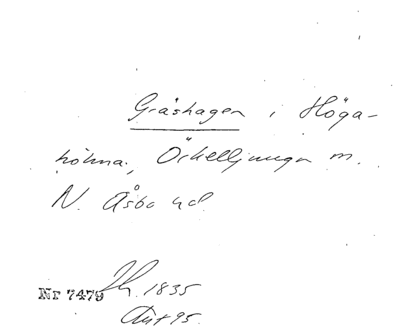 Gråshagen i Höga-
holma, Örkelljunga m.
N. Åsbo hd.
Nr 7479
1835
Ant 95.